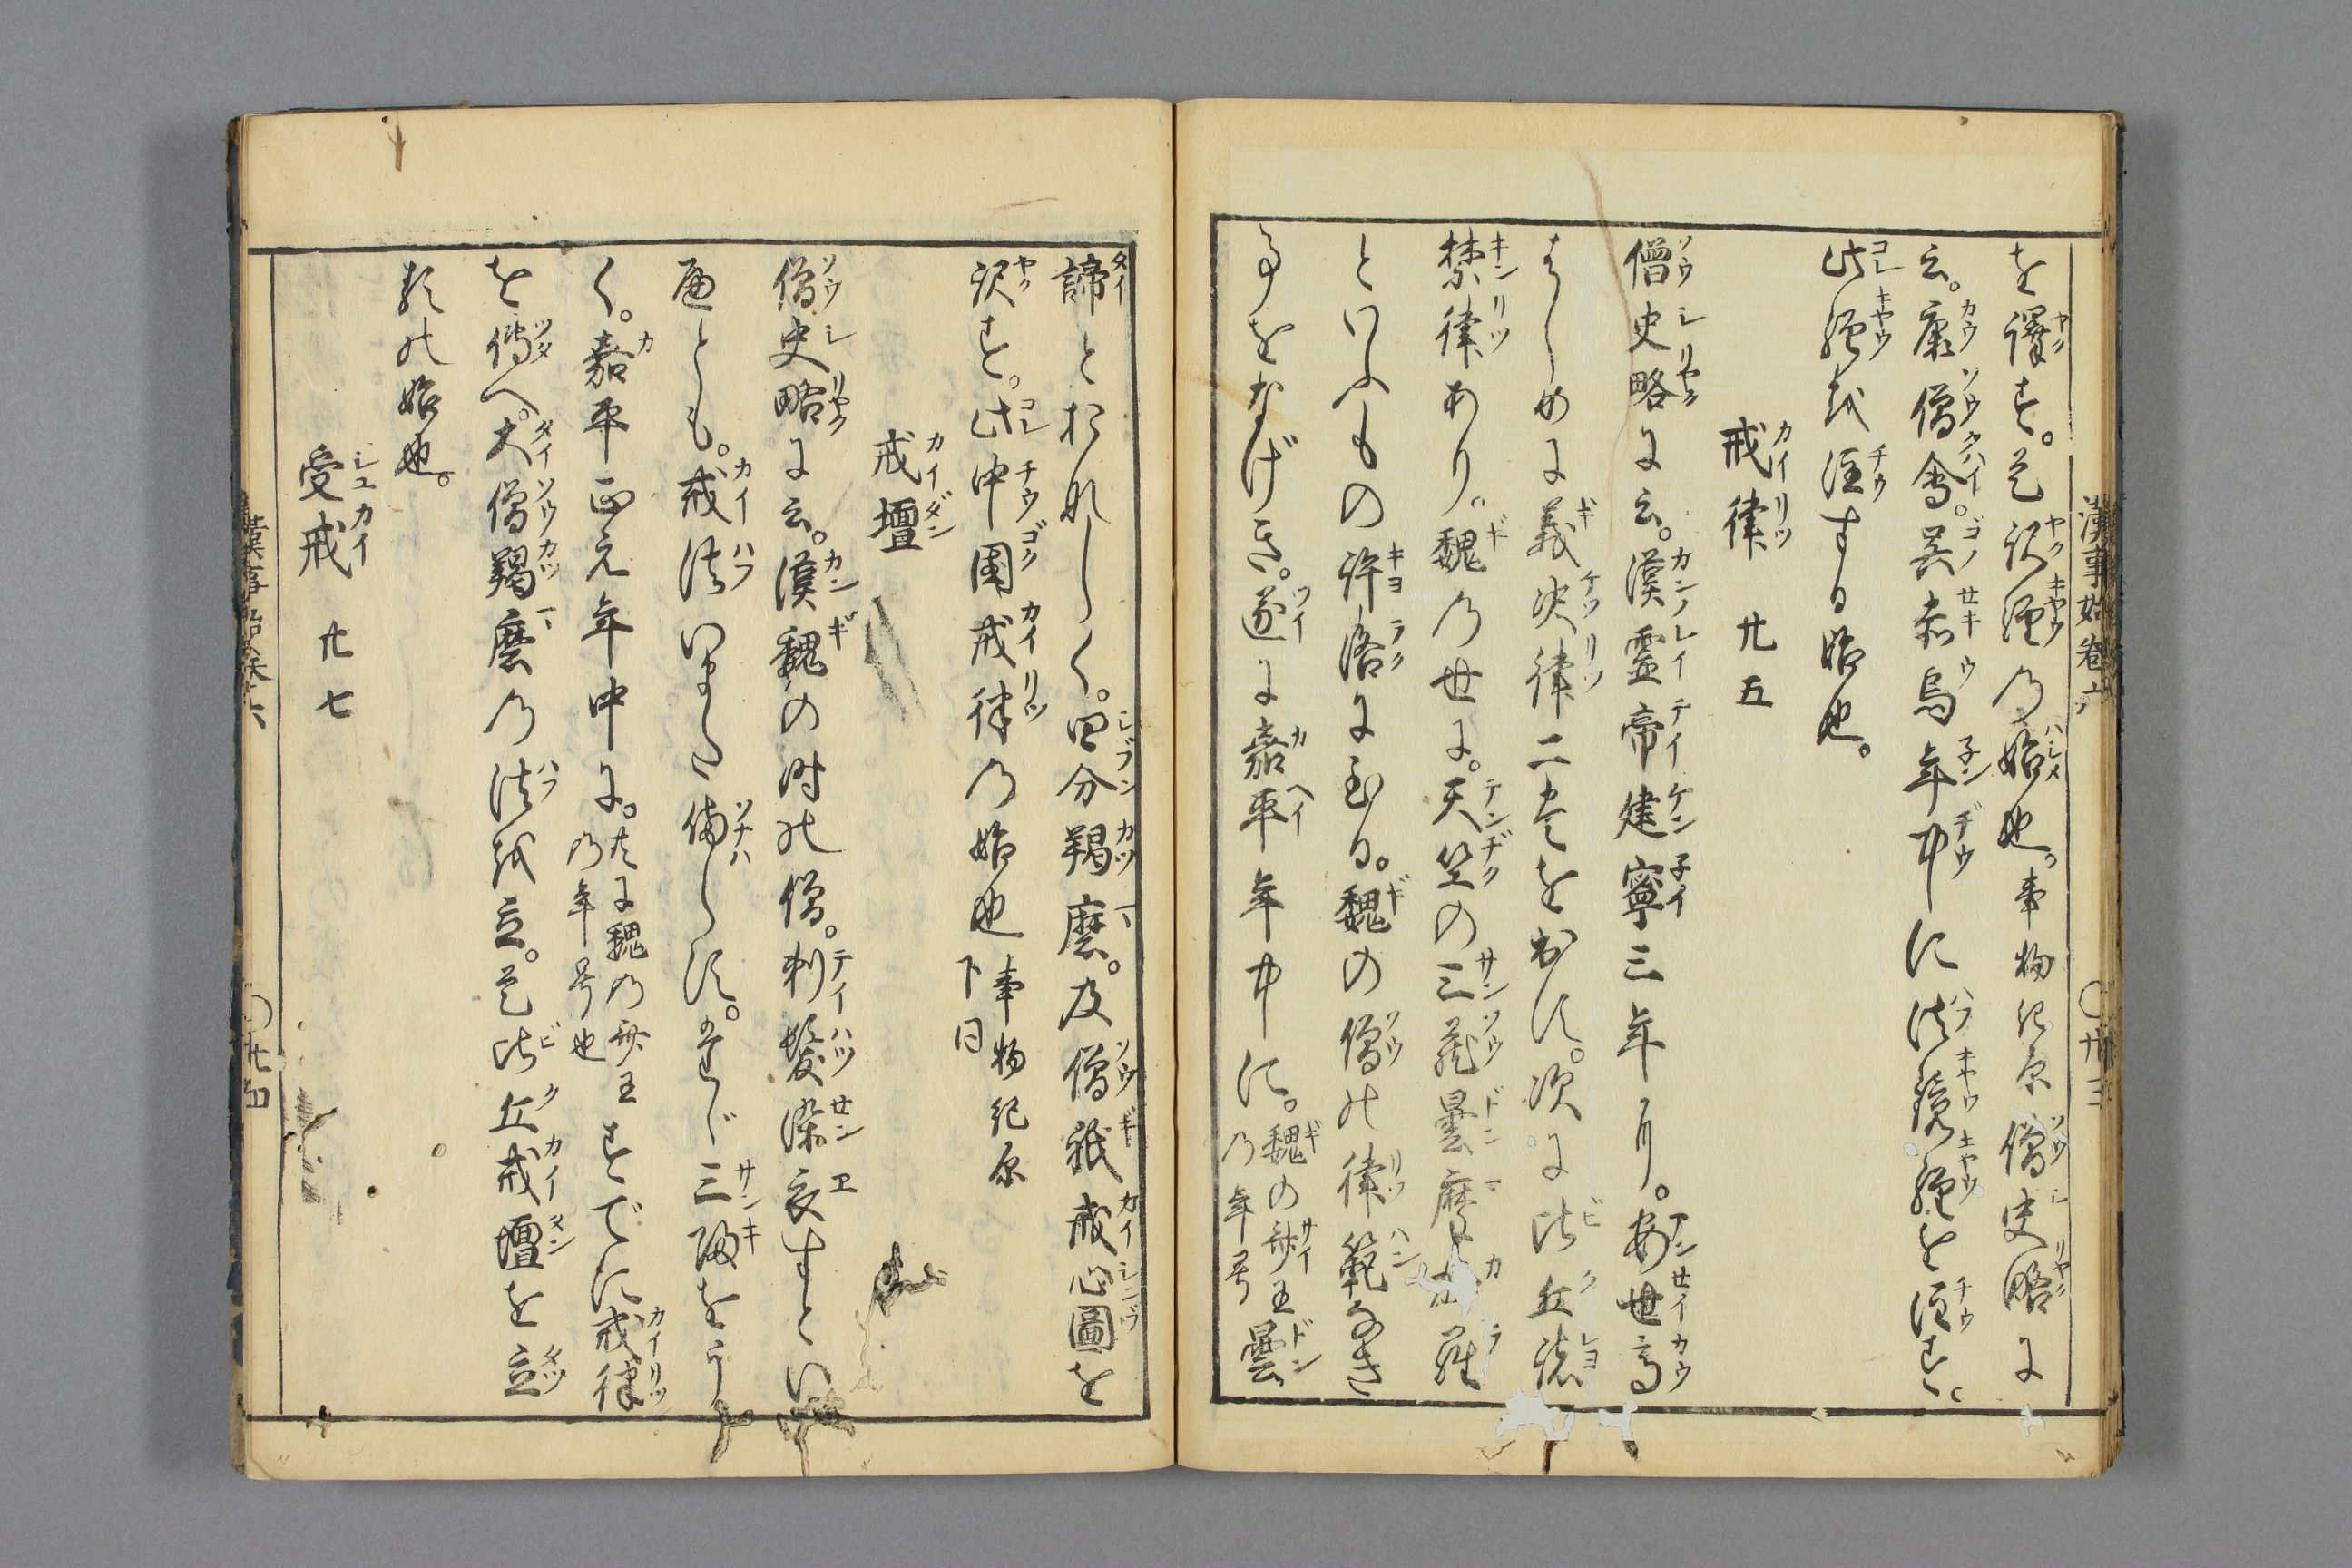 漢事始巻六 〇廿三
を譯す。是訳経の始也。事物紀原僧史略に
云。康僧會。呉赤烏年中に法鏡経を注す。
此経を注する始也。
戒律 廿五
僧史略に云。漢霊帝建寧三年に。安世高
はじめに義决律二巻を出す。次に比丘諸
禁律あり。魏の世に。天竺の三蔵曇摩迦羅
といふもの許洛に至る。魏の僧の律範なき
事をなげき。遂に嘉平年中に。魏の斉王の年号曇
諦とおなじく。四分羯磨。及僧祇戒心圖を
訳す。此中國戒律の始也事物紀原下同
戒壇
僧史略に云。漢魏の時の僧。剃髪染衣すとい
へども。戒法いまだ備らず。たゞ三帰をう
く。嘉平正元年中に。共に魏の斉王の年号也すでに戒律
を傳へ。大僧羯磨の法を立。是比丘戒壇を立
るの始也。
受戒 廿七
漢事始巻六 〇廿四